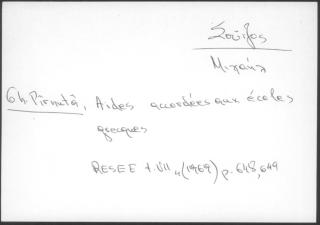 Σούτζος
Μιχαήλ
Gh. Pîrnuţă, Aides accordées aux écoles
grecques
RESEE t. VII 4 (1969) p. 648, 649